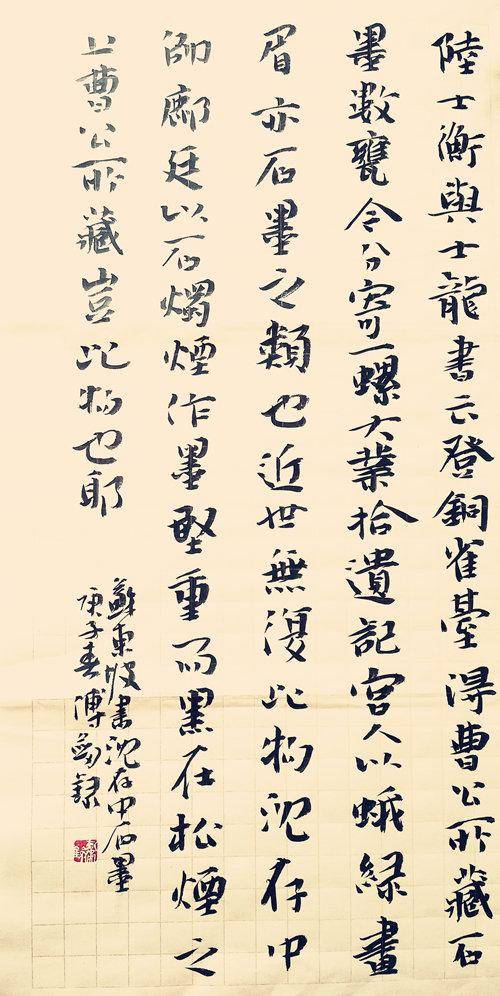 陸士衡與士龍書云登銅雀臺得曹公所藏石
墨數甕今分寄一螺大業拾遺記宮人以蛾綠畫
眉亦石墨之類也近世無復此物沈存中
帥鄜延以石燭煙作墨堅重而黑在松煙之
上曹公所藏豈此物也耶
蘇東坡書沈存中石墨
庚子春傅錄